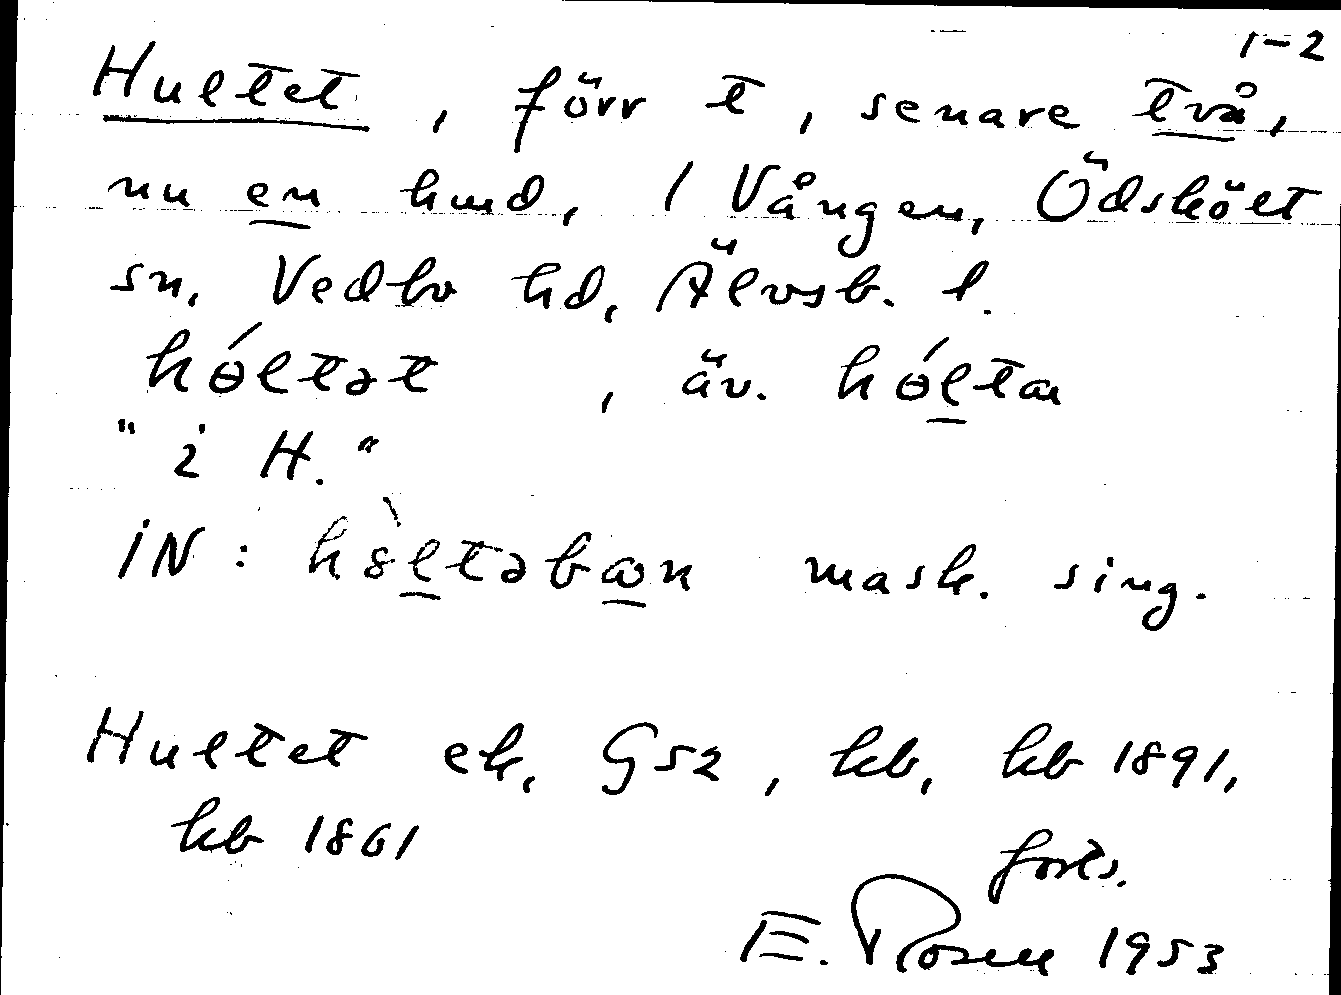 1-2
Hultet, förr t, senare två,
nu en hmd, / Vången, Ödsköt
sn, Vedbo hd, Älvsb. l.
hóltət, äv. hóltəɯ
"i H."
iN: hòltəbɷn mask. sing.
Hultet ek, G52, kb, kb 1891,
kb 1861
forts.
E. Rosen 1953